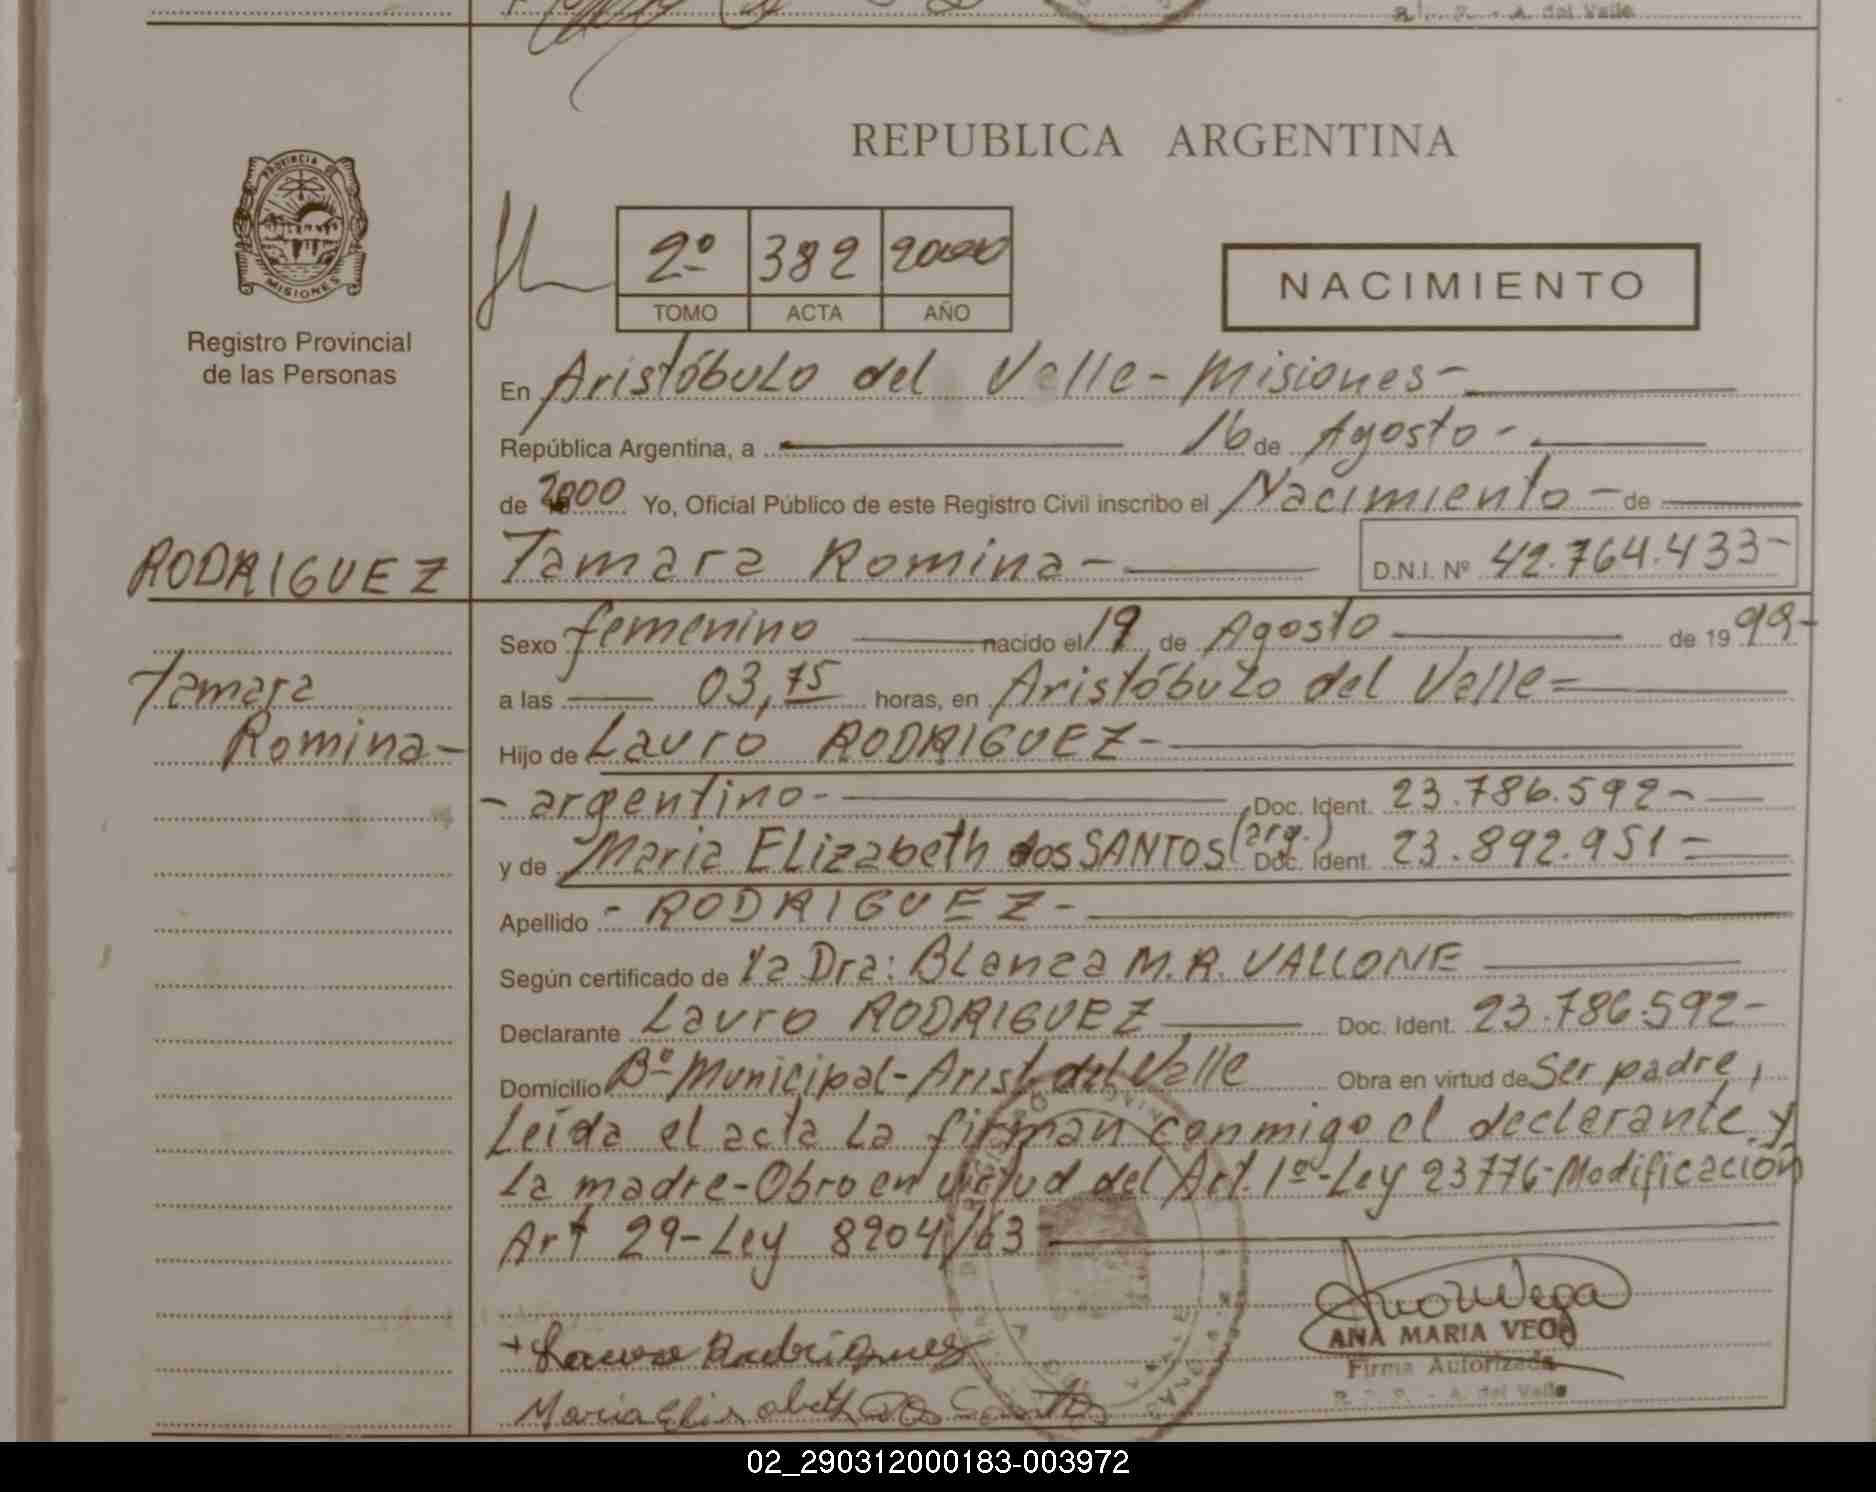 R. P. P. - A. del Valle
REPUBLICA ARGENTINA
PROVINCIA DE
MISIONES
Registro Provincial
de las Personas
2º 382 2000
TOMO ACTA AÑO
NACIMIENTO
En Aristóbulo del Valle - Misiones -
República Argentina, a 16 de Agosto -
de 2000 Yo, Oficial Público de este Registro Civil inscribo el Nacimiento - de
RODRIGUEZ Tamara Romina - D.N.I. Nº 42.764.433-
Sexo femenino nacido el 19 de Agosto de 19 99-
Tamara
a las 03,15 horas, en Aristóbulo del Valle =
Romina-
Hijo de Lauro RODRIGUEZ -
- argentino - Doc. Ident. 23.786.592-
y de Maria Elizabeth dos SANTOS (arg.) Doc. Ident. 23.892.951 =
Apellido - RODRIGUEZ -
Según certificado de la Dra: Blanca M.R. VALLONE
Declarante Lauro RODRIGUEZ Doc. Ident. 23.786.592-
Domicilio Bº Municipal - Arist. del Valle Obra en virtud de Ser padre,
Leída el acta la firman conmigo el declarante y
la madre - Obro en virtud del Art. 1º - Ley 23776 - Modificación
Art 29 - Ley 8204/63 -
+ Lauro Rodriguez
ANA MARIA VEGA
Firma Autorizada
R. P. P. - A. del Valle
Maria Elizabeth Dos Santos
02_290312000183-003972